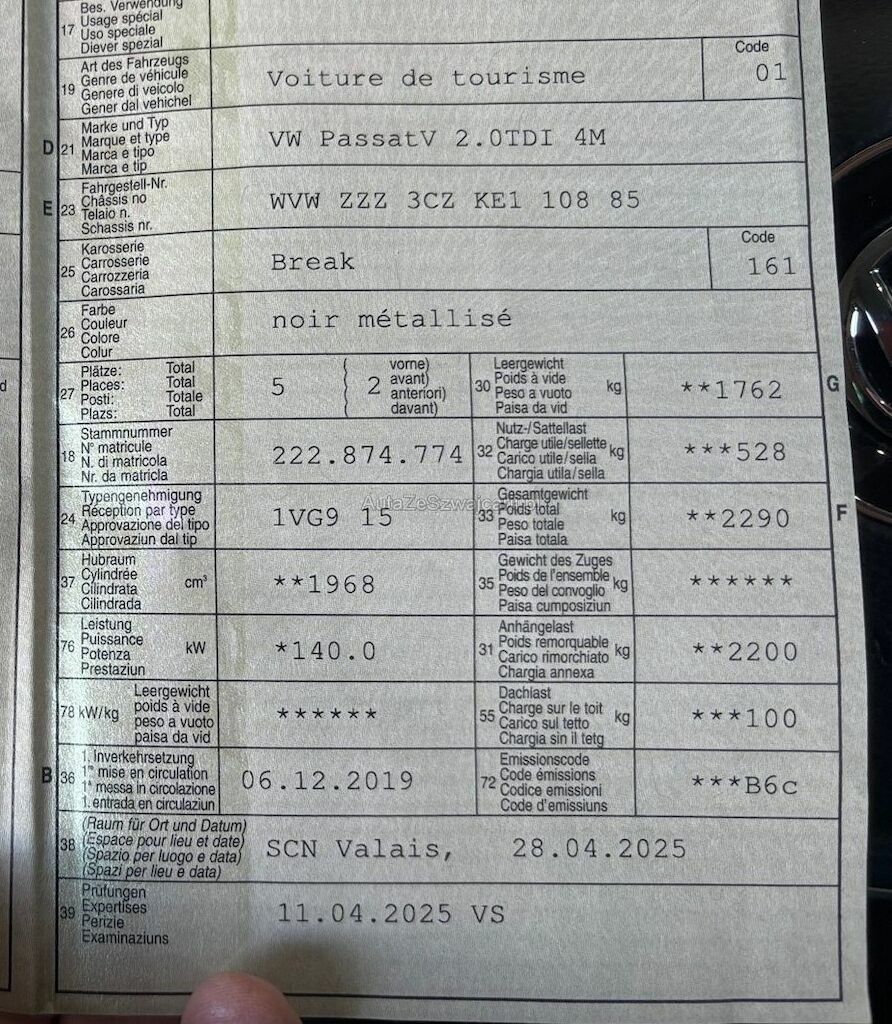 Bes. Verwendung
17 Usage spécial
Uso speciale
Diever spezial
Art des Fahrzeugs
19 Genre de véhicule
Genere di veicolo
Gener dal vehichel
Voiture de tourisme
Code
01
D 21 Marke und Typ
Marque et type
Marca e tipo
Marca e tip
VW PassatV 2.0TDI 4M
E 23 Fahrgestell-Nr.
Châssis no
Telaio n.
Schassis nr.
WVW ZZZ 3CZ KE1 108 85
25 Karosserie
Carrosserie
Carrozzeria
Carossaria
Break
Code
161
26 Farbe
Couleur
Colore
Colur
noir métallisé
27 Plätze: Total
Places: Total
Posti: Totale
Plazs: Total
5 ( 2 vorne)
avant)
anteriori)
davant)
30 Leergewicht
Poids à vide
Peso a vuoto
Paisa da vid
kg **1762 G
18 Stammnummer
N° matricule
N. di matricola
Nr. da matricla
222.874.774
32 Nutz-/Sattellast
Charge utile/sellette
Carico utile/sella
Chargia utila/sella
kg ***528
24 Typengenehmigung
Réception par type
Approvazione del tipo
Approvaziun dal tip
1VG9 15
33 Gesamtgewicht
Poids total
Peso totale
Paisa totala
kg **2290 F
37 Hubraum
Cylindrée
Cilindrata
Cilindrada
cm³ **1968
35 Gewicht des Zuges
Poids de l'ensemble
Peso del convoglio
Paisa cumposiziun
kg ******
76 Leistung
Puissance
Potenza
Prestaziun
kW *140.0
31 Anhängelast
Poids remorquable
Carico rimorchiato
Chargia annexa
kg **2200
78 kW/kg Leergewicht
poids à vide
peso a vuoto
paisa da vid
******
55 Dachlast
Charge sur le toit
Carico sul tetto
Chargia sin il tetg
kg ***100
B 36 1. Inverkehrsetzung
1re mise en circulation
1a messa in circolazione
1. entrada en circulaziun
06.12.2019
72 Emissionscode
Code émissions
Codice emissioni
Code d'emissiuns
***B6c
38 (Raum für Ort und Datum)
(Espace pour lieu et date)
(Spazio per luogo e data)
(Spazi per lieu e data)
SCN Valais, 28.04.2025
39 Prüfungen
Expertises
Perizie
Examinaziuns
11.04.2025 VS